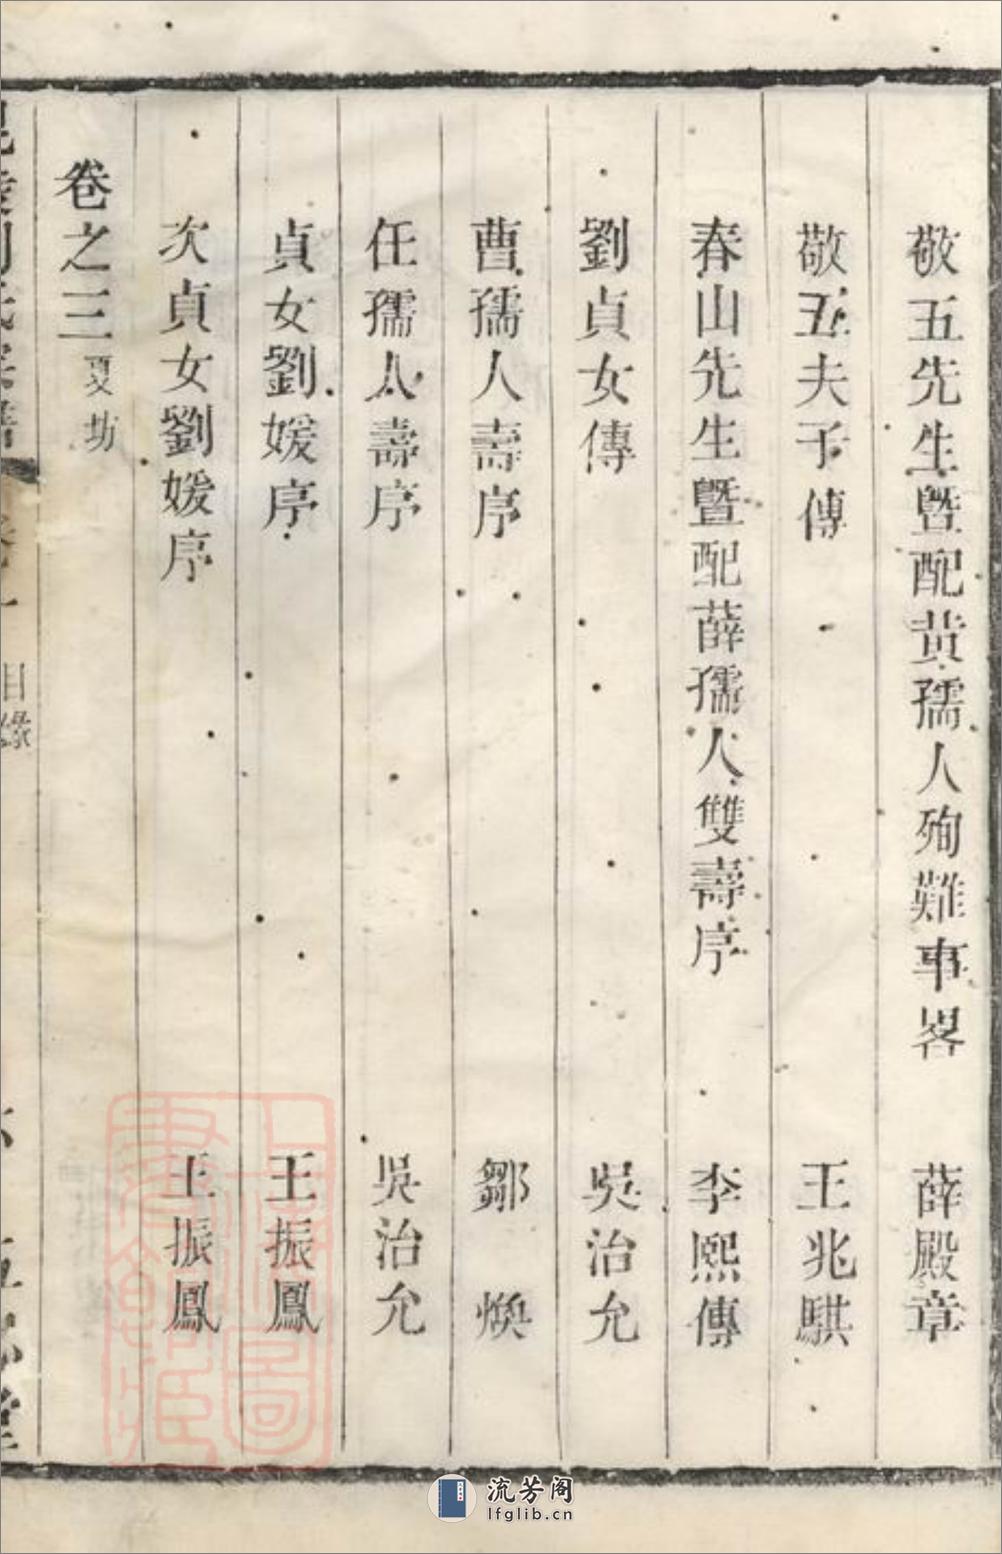 敬五先生曁配黄孺人殉難事畧 薛殿章
敬五夫子傳 王兆騏
春山先生曁配薛孺人雙壽序 李熙傳
劉貞女傳 吳治允
曹孺人壽序 鄒煥
任孺人壽序 吳治允
貞女劉媛序 王振鳳
次貞女劉媛序 王振鳳
卷之三 夏坊
目錄
流芳阁
lfglib.cn